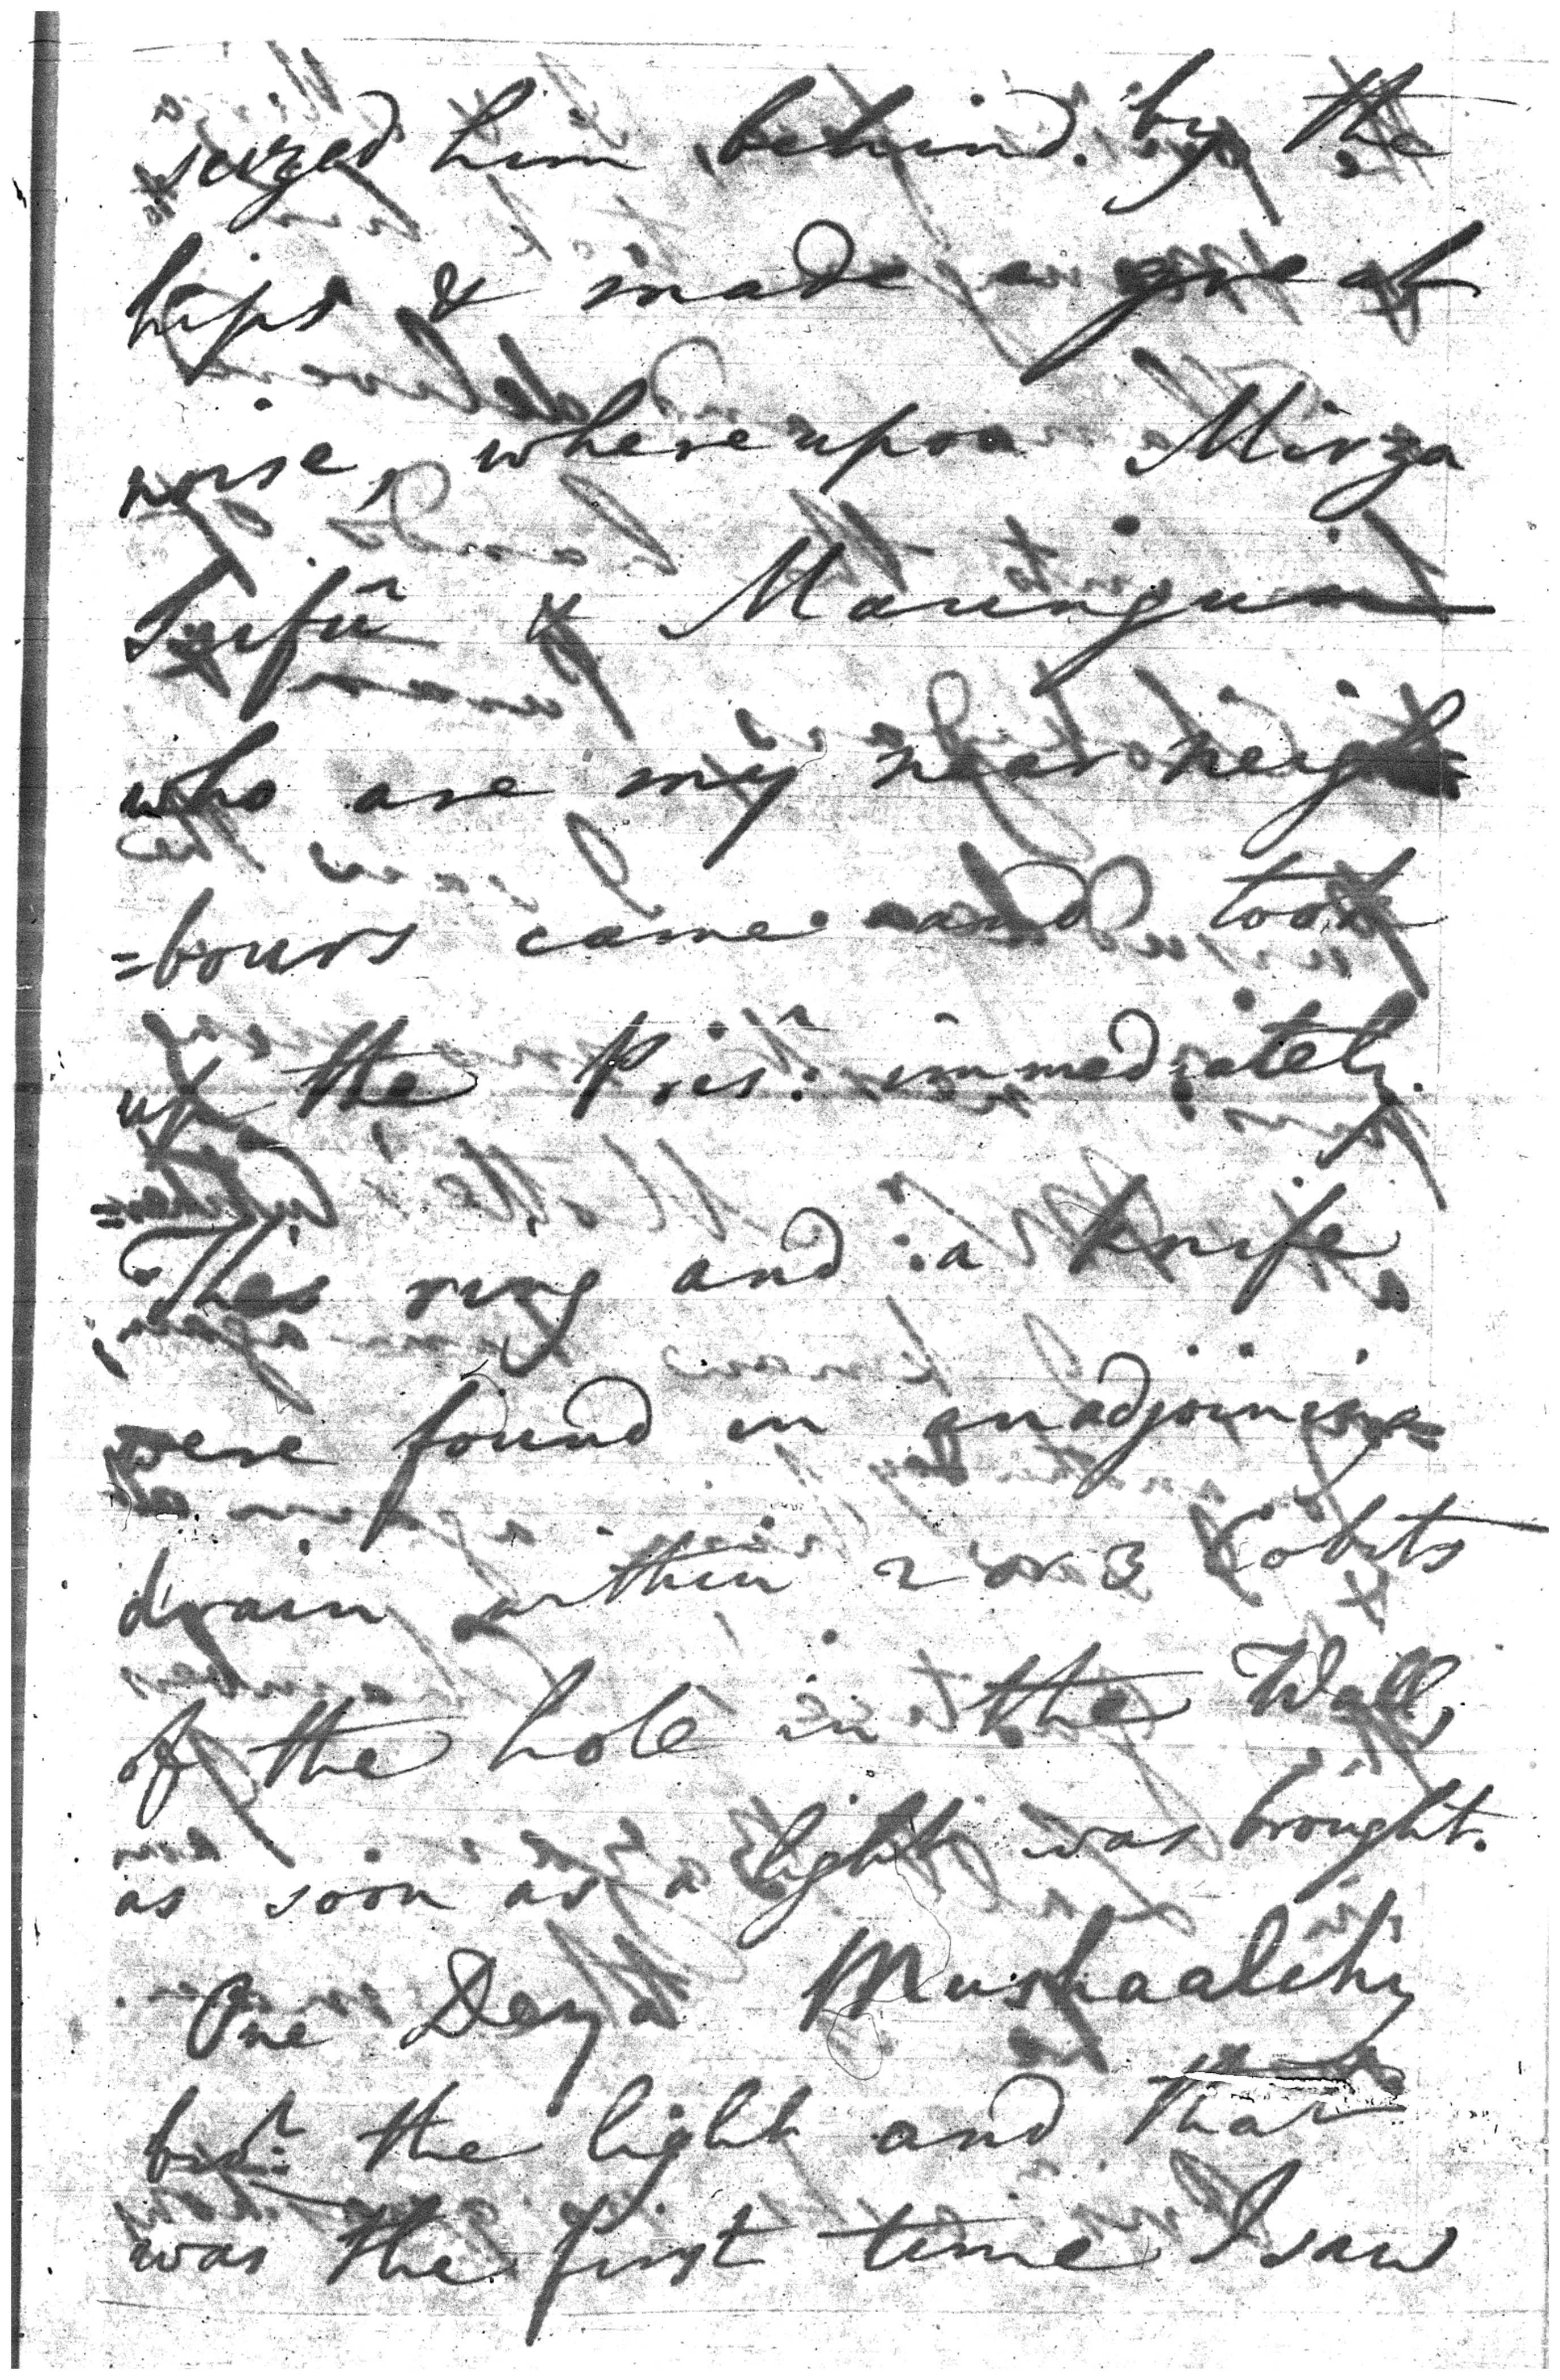 seized him behind by the
hips & made a great
noise, whereupon Mirza
&
who are my near neigh
=bours came and took
up the Prisr. immediately.
This ring and a knife
were found in an adjoining
drain within 2 or 3 Cobits
of the hole in the Wall,
as soon as a light was brought.
One Deya Mushaalchy
brot. the light and that
was the first time I saw